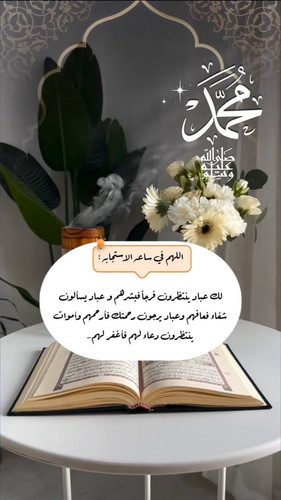 محمد
صلى الله
عليه
وسلم
اللهم في ساعه الاستجابه :
لك عباد ينتظرون فرجاً فبشرهم و عباد يسألون
شفاء فعافهم وعباد يرجون رحمتك فأرحمهم واموات
ينتظرون دعاء لهم فاغفر لهم..